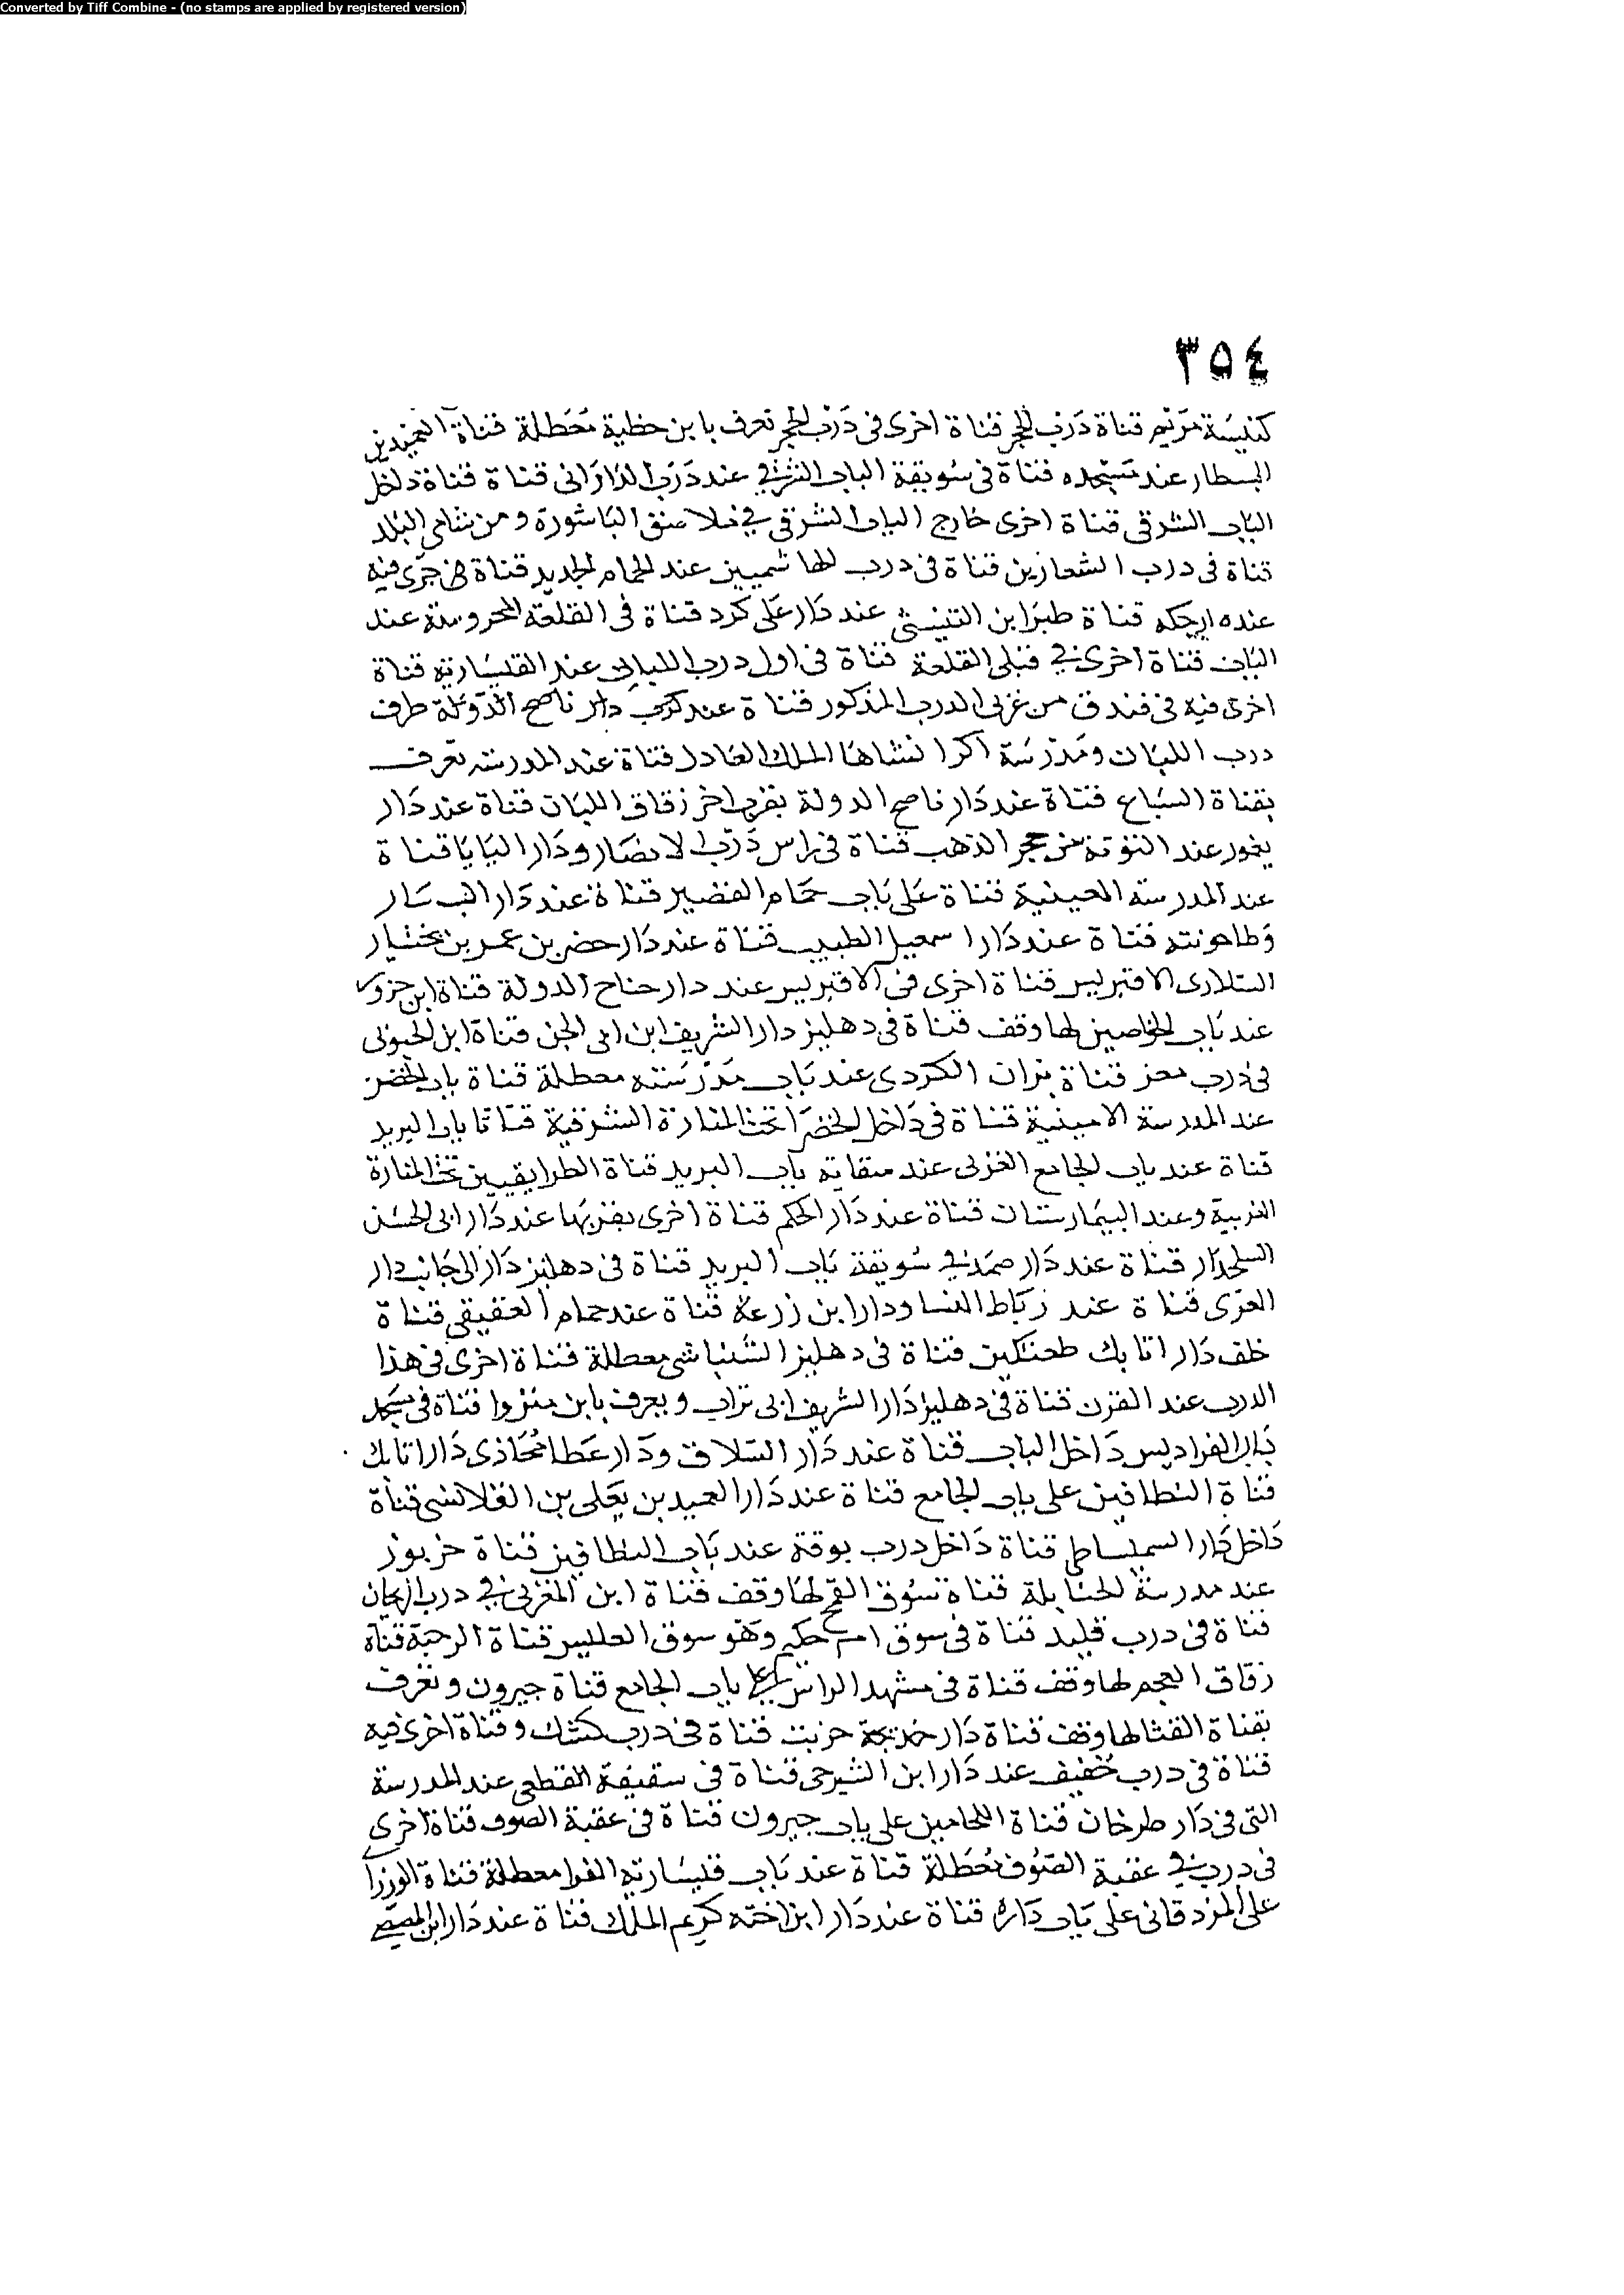 Converted by Tiff Combine - (no stamps are applied by registered version)
٣٥٤
كنيسة مريم قناة درب الحجر قناة اخرى فى درب الحجر تعرف بابن حظية معطلة قناة
عند مسجده قناة فى سويقة الباب الشرقى عند درب الدارانى قناة قناة داخل
الباب الشرقى قناة اخرى خارج الباب الشرقى فى الباشورة ومن شامى البلد
قناة فى درب الشعارين قناة فى درب الهاشميين عند الحمام الجديد قناة
عند قناة عند دار على كرد قناة فى القلعة المحروسة عند
الباب قناة اخرى فى قبلى القلعة قناة فى اول درب اللبان عند القيسارية قناة
اخرى فيه فى فندق من غربى الدرب المذكور قناة عند دار ناصح الدولة طرف
درب اللبان ومدرسة انشاها الملك العادل قناة عند المدرسة تعرف
بقناة السباع قناة عند دار ناصح الدولة بقربها اخر زقاق اللبان قناة عند دار
يغمور عند حجر الذهب قناة فى راس درب الانصار ودار البابا قناة
عند المدرسة المعينية قناة على باب حمام القصير قناة عند دار
وطاحونته قناة عند دار اسمعيل الطبيب قناة عند دار خضر بن عمر بن بختيار
السلارى قناة اخرى فى عند دار جناح الدولة قناة ابن
عند باب الخواصين لها وقف قناة فى دهليز دار الشريف ابن ابى الجن قناة ابن
فى درب قناة بزان الكردى عند باب مدرسته معطلة قناة باب الخضرا
عند المدرسة الامينية قناة فى داخل الخضرا تحت المنارة الشرقية قناتا باب البريد
قناة عند باب الجامع الغربى عند سقاية باب البريد قناة الطرايقيين تحت المنارة
الغربية وعند البيمارستان قناة عند دار الحكم قناة اخرى بقربها عند دار ابى الحسن
السلحدار قناة عند دار صمد فى سويقة باب البريد قناة فى دهليز دار الى جانب دار
العزى قناة عند رباط النسا ودار ابن زرعة قناة عند حمام العقيقى قناة
خلف دار اتابك طغتكين قناة فى دهليز معطلة قناة اخرى فى هذا
الدرب عند الفرن قناة فى دهليز دار الشريف ابى تراب ويعرف بابن منزوا قناة فى مسجد
باب الفراديس داخل الباب قناة عند دار السلاق ودار عطا محاذى دار اتابك
قناة النطافين على باب الجامع قناة عند دار العميد بن يعلى بن القلانسى قناة
داخل دار السميساطى قناة داخل درب بوقة عند باب النطافين قناة خربوز
عند مدرسة الحنابلة قناة سوق القمح لها وقف قناة ابن المغربى فى درب الريحان
قناة فى درب قليد قناة فى سوق ام حكيم وهو سوق قناة الرحبة قناة
زقاق العجم لها وقف قناة فى مشهد الراس باب الجامع قناة جيرون وتعرف
بقناة القثا لها وقف قناة دار خديجة خربت قناة فى درب كشك وقناة اخرى فيه
قناة فى درب عند دار ابن الشيرجى قناة فى سقيفة القطيعى عند المدرسة
التى فى دار طرخان قناة اللحامين على باب جيرون قناة فى عقبة الصوف قناة اخرى
فى درب فى عقبة الصوف معطلة قناة عند باب قيسارية الفرا معطلة قناة الوزرا
على المزدقانى على باب داره قناة عند دار ابن اخته كريم الملك قناة عند دار ابن